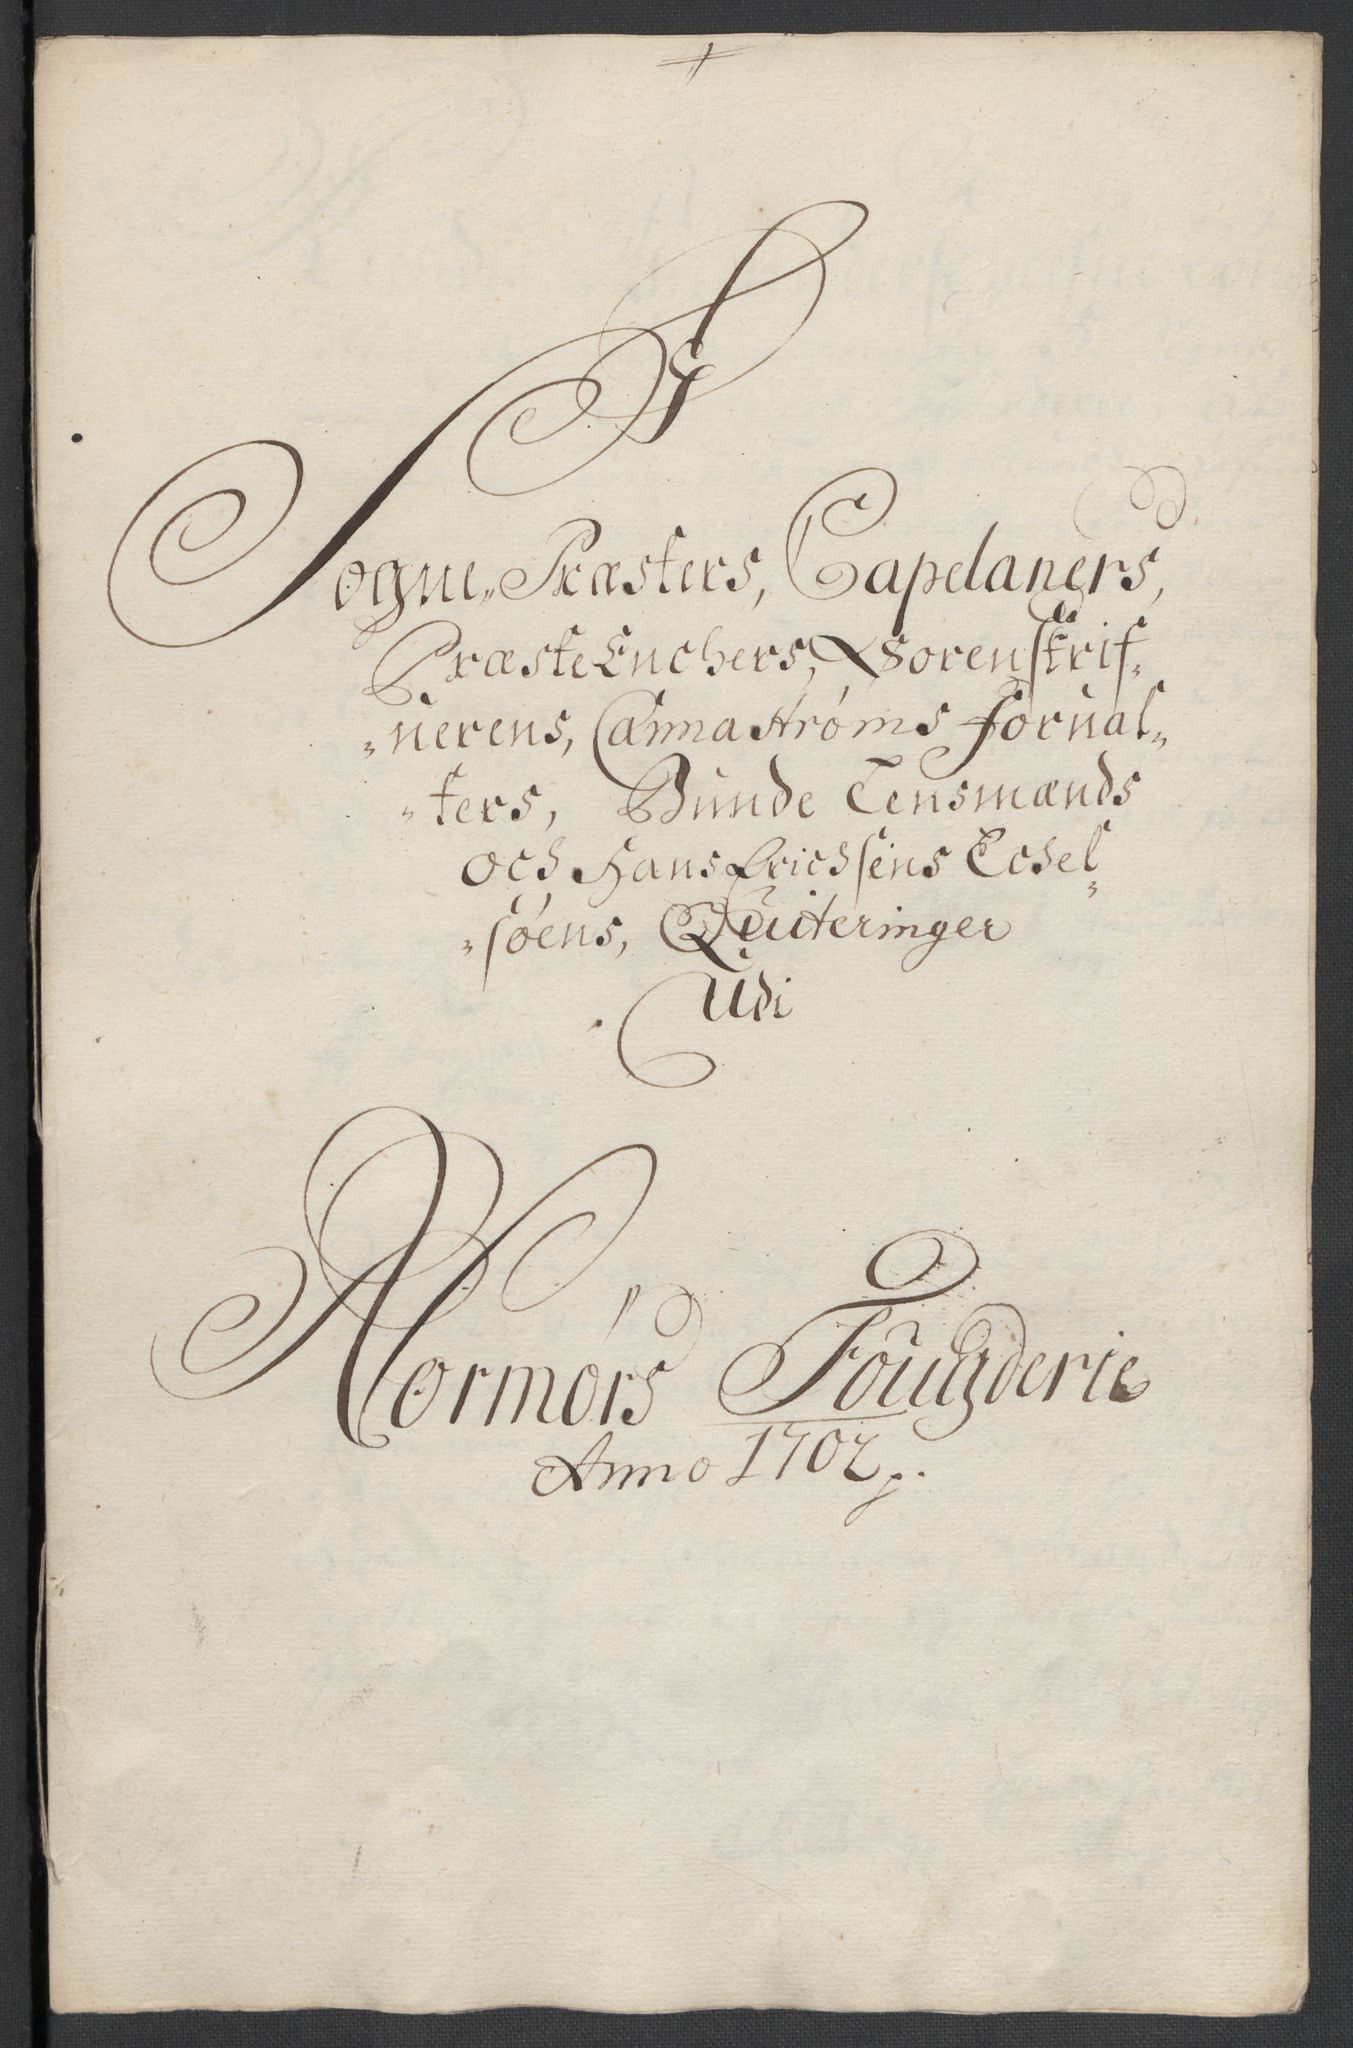 Sogne-Præsters, Capelaners,
Præste Enchers, Sorenskrif-
-uerens, Canna Strøms forual-
-ters, Bunde Lensmænds
och Hans Erichsens Echel-
-søens, Quiteringer
Udi
Normørs Fougderie
Anno 1702